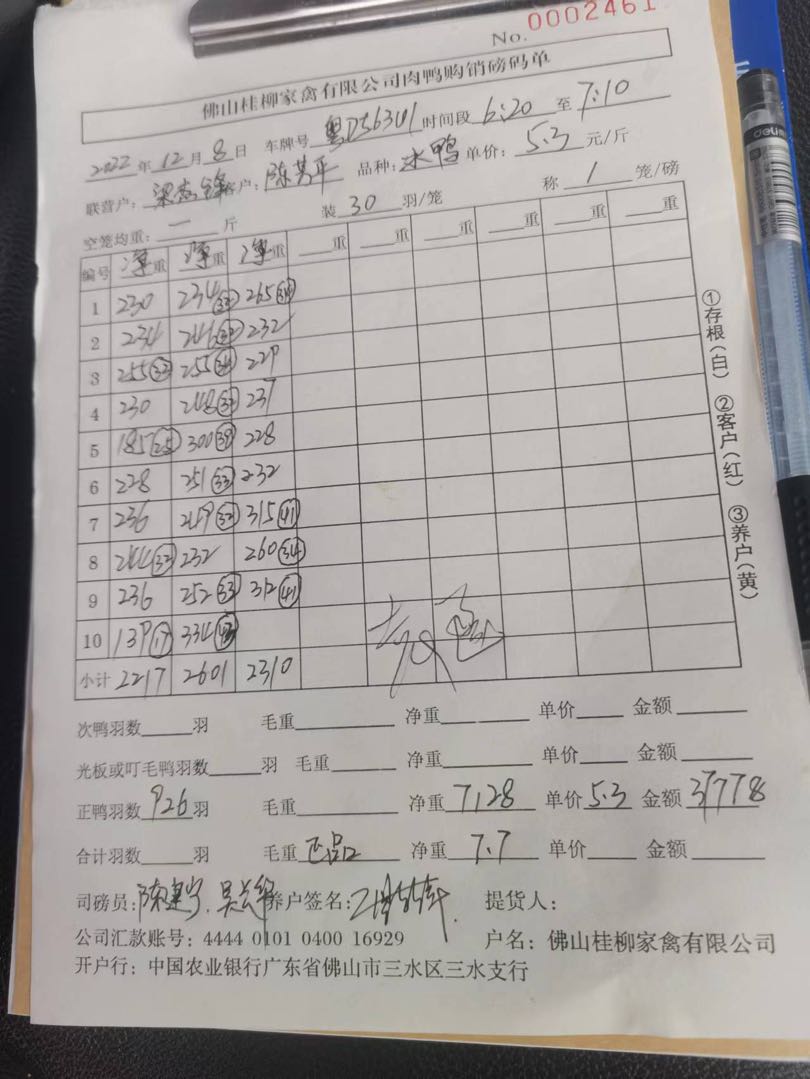 No. 0002461
佛山桂柳家禽有限公司肉鸭购销磅码单
2022年12月8日 车牌号 时间段 6:20 至 7:10
联营户: 客户: 品种: 水鸭 单价: 5.3 元/斤
空笼均重: — 斤 装 30 羽/笼 称 1 笼/磅
编号 净重 净重 净重 重 重 重 重 重 重
1 230 234 265
2 234 246 232
3 255(33) 255(34) 229
4 230 248(33) 237
5 185(25) 300(39) 228
6 228 251(33) 232
7 236 249(32) 315(41)
8 244(32) 232 260(34)
9 236 252(33) 312(41)
10 139(17) 334
小计 2217 2601 2310
①存根(白) ②客户(红) ③养户(黄)
次鸭羽数 羽 毛重 净重 单价 金额
光板或叮毛鸭羽数 羽 毛重 净重 单价 金额
正鸭羽数 926 羽 毛重 净重 7128 单价 5.3 金额 37778
合计羽数 羽 毛重 净重 7.7 单价 金额
司磅员: 养户签名: 提货人:
公司汇款账号: 4444 0101 0400 16929 户名: 佛山桂柳家禽有限公司
开户行: 中国农业银行广东省佛山市三水区三水支行
deli